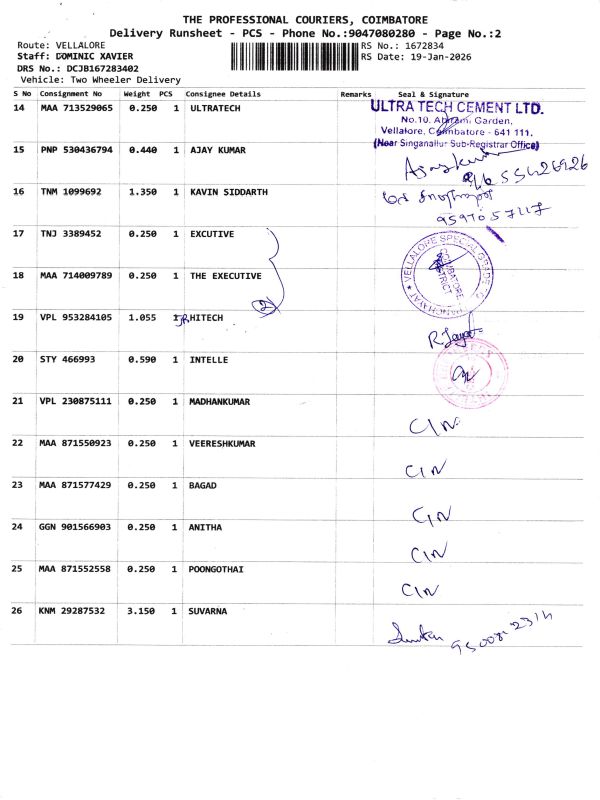 THE PROFESSIONAL COURIERS, COIMBATORE
Delivery Runsheet - PCS - Phone No.:9047080280 - Page No.:2
Route: VELLALORE
RS No.: 1672834
Staff: DOMINIC XAVIER
RS Date: 19-Jan-2026
DRS No.: DCJB167283402
Vehicle: Two Wheeler Delivery
S No Consignment No Weight PCS Consignee Details Remarks Seal & Signature
14 MAA 713529065 0.250 1 ULTRATECH
ULTRA TECH CEMENT LTD.
No.10, Garden,
Vellalore, Coimbatore - 641 111.
(Near Singanallur Sub-Registrar Office)
15 PNP 530436794 0.440 1 AJAY KUMAR
Ajaykumar
16 TNM 1099692 1.350 1 KAVIN SIDDARTH
9597057117
17 TNJ 3389452 0.250 1 EXCUTIVE
18 MAA 714009789 0.250 1 THE EXECUTIVE
2
VELLALORE SPECIAL GRADE
PANCHAYAT
COIMBATORE
DISTRICT
19 VPL 953284105 1.055 1 HITECH
20 STY 466993 0.590 1 INTELLE
21 VPL 230875111 0.250 1 MADHANKUMAR
C/N
22 MAA 871550923 0.250 1 VEERESHKUMAR
C/N
23 MAA 871577429 0.250 1 BAGAD
C/N
24 GGN 901566903 0.250 1 ANITHA
C/N
25 MAA 871552558 0.250 1 POONGOTHAI
C/N
26 KNM 29287532 3.150 1 SUVARNA